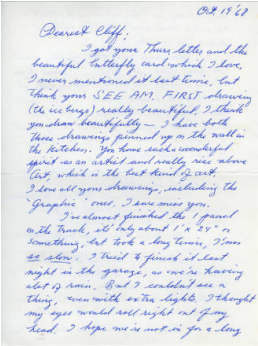 Oct 19 '68
Dearest Cliff:
I got your Thurs letter and the
beautiful butterfly card which I love,
I never mentioned it last time, but
think your SEE AM FIRST drawing
(the ice bergs) really beautiful. I think
you draw beautifully – I have both
those drawings pinned up on the wall in
the kitchen. You have such a wonderful
spirit as an artist and really rise above
Art, which is the best kind of art.
I love all your drawings, including the
"Graphic" ones. I sure miss you.
I've almost finished the 1 panel
on the truck, it's only about 1' x 24" or
something, but took a long time, I'm
so slow. I tried to finish it last
night in the garage, as we're having
alot of rain. But I couldn't see a
thing, even with extra lights. I thought
my eyes would roll right out of my
head. I hope we're not in for a long